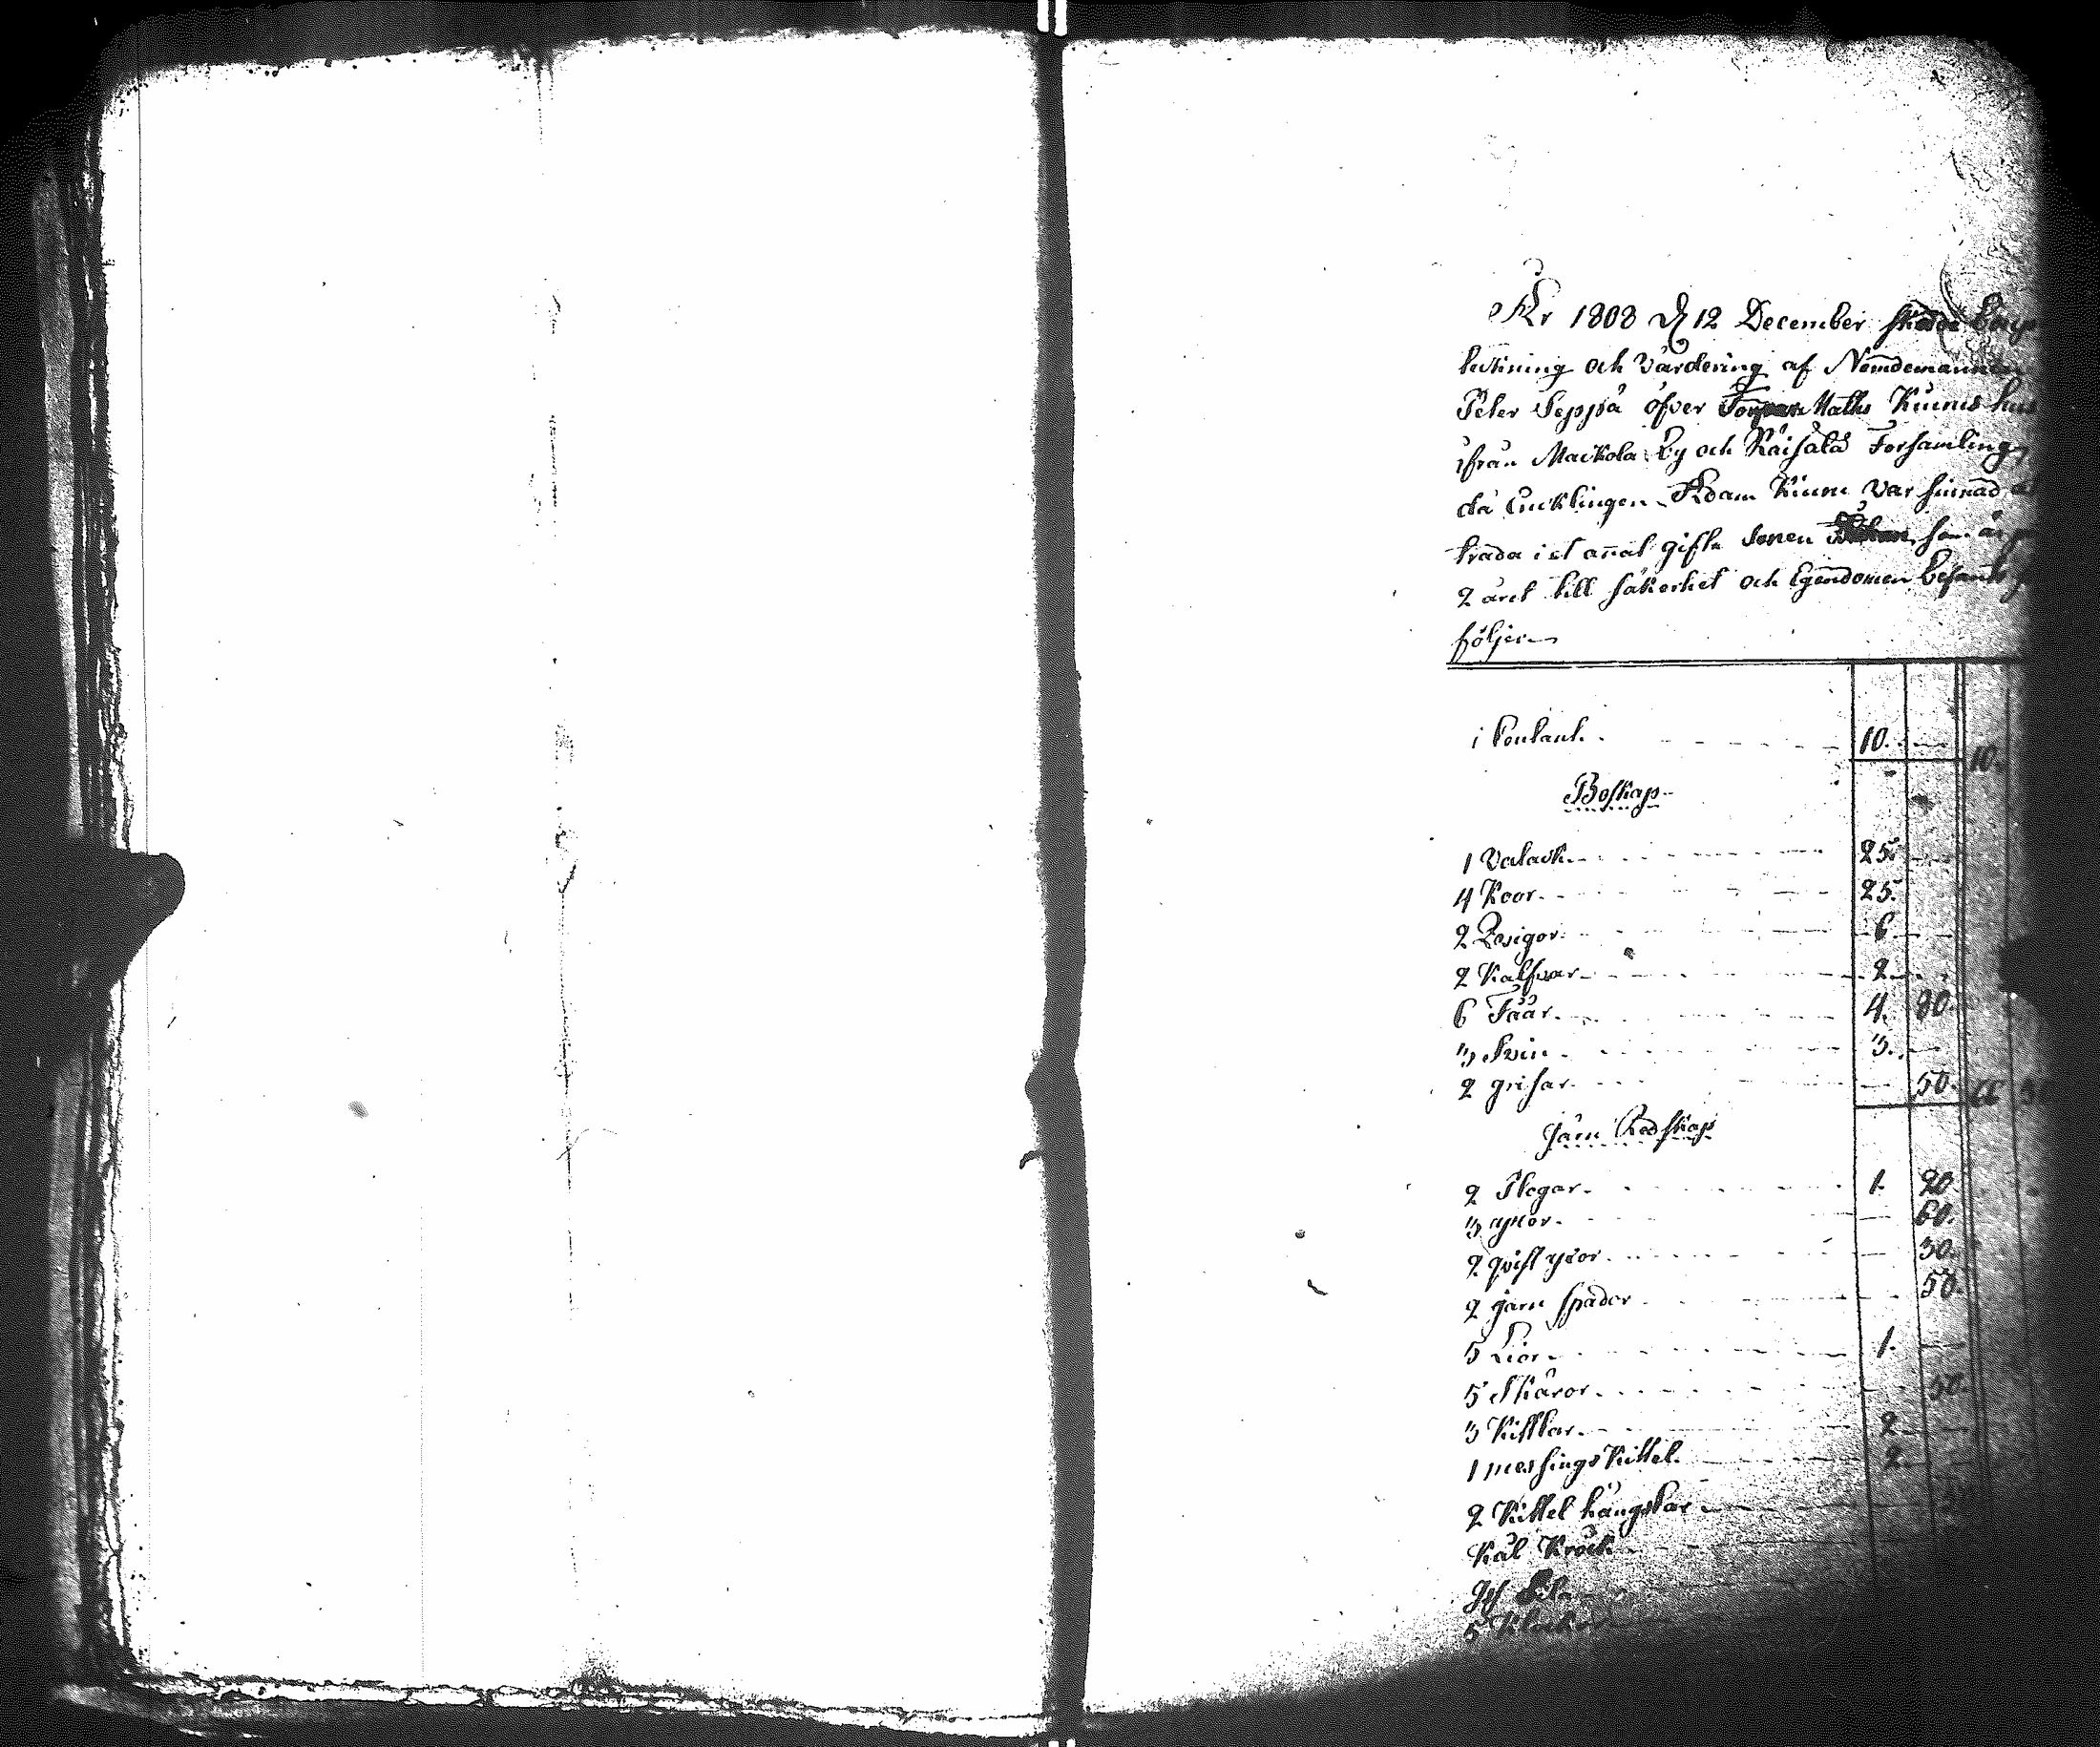 År 1808 d 12 December skedde Bup
luttning och Värdering af Nämdemannen
Peter Seppä öfver Matts Kiuru hus
ifrån Mackola By och Räisälä Församling
då Enklingen Adam Kiuru var sinnad
träda i et annat gifte Sonen som är
2 året till säkerhet och Egendomen befants
följer
i Contant. 10. 10.
Boskap
1 Valack 25.
4 Koor 25.
2 Qvigor 6
2 Kalfvar 2.
6 Fåår 4. 80.
3 Svin 3.
2 grisar 50. 66 30
Järn Redskap
2 Plogar 1. 20
3 yxor 60.
2 qvist yxor 30.
2 järn spador 50.
5 Lior 1.
5 Skäror 50.
3 Kittlar 2.
1 messings Kittel 2.
2 Kittel hängslar
Kål Krock
5